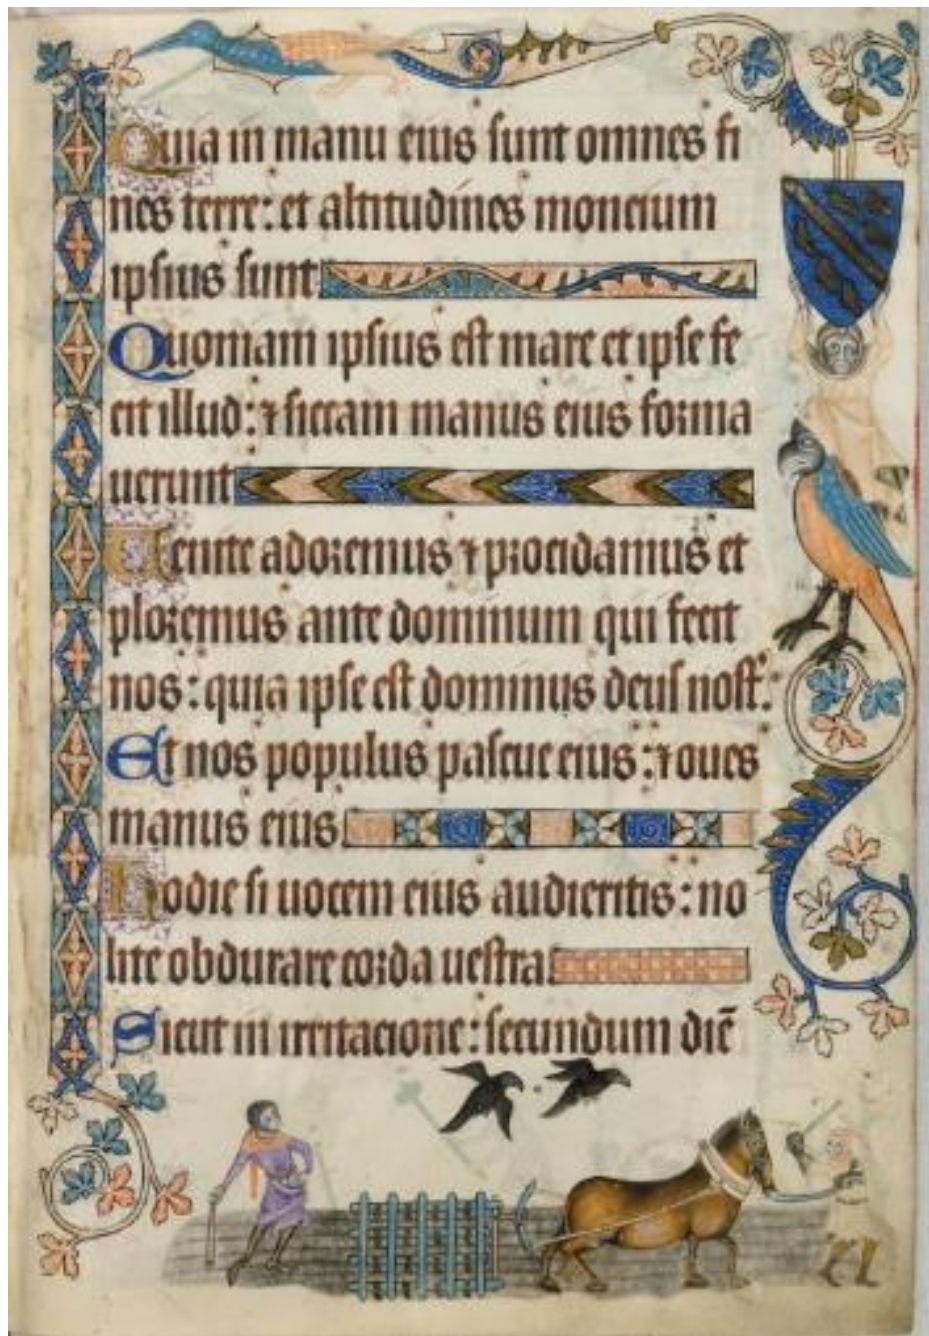 Quia in manu eius sunt omnes fi
nes terre: et altitudines moncium
ipsius sunt.
Quoniam ipsius est mare et ipse fe
cit illud: ⁊ siccam manus eius forma
uerunt
Uenite adoremus ⁊ procidamus et
ploremus ante dominum qui fecit
nos: quia ipse est dominus deus nost̉.
Et nos populus pascue eius: ⁊ oues
manus eius.
Hodie si uocem eius audieritis: no
lite obdurare corda uestra.
Sicut in irritacione: secundum diē